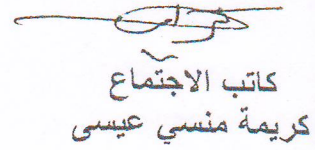 كاتب الاجتماع
كريمة منسي عيسى